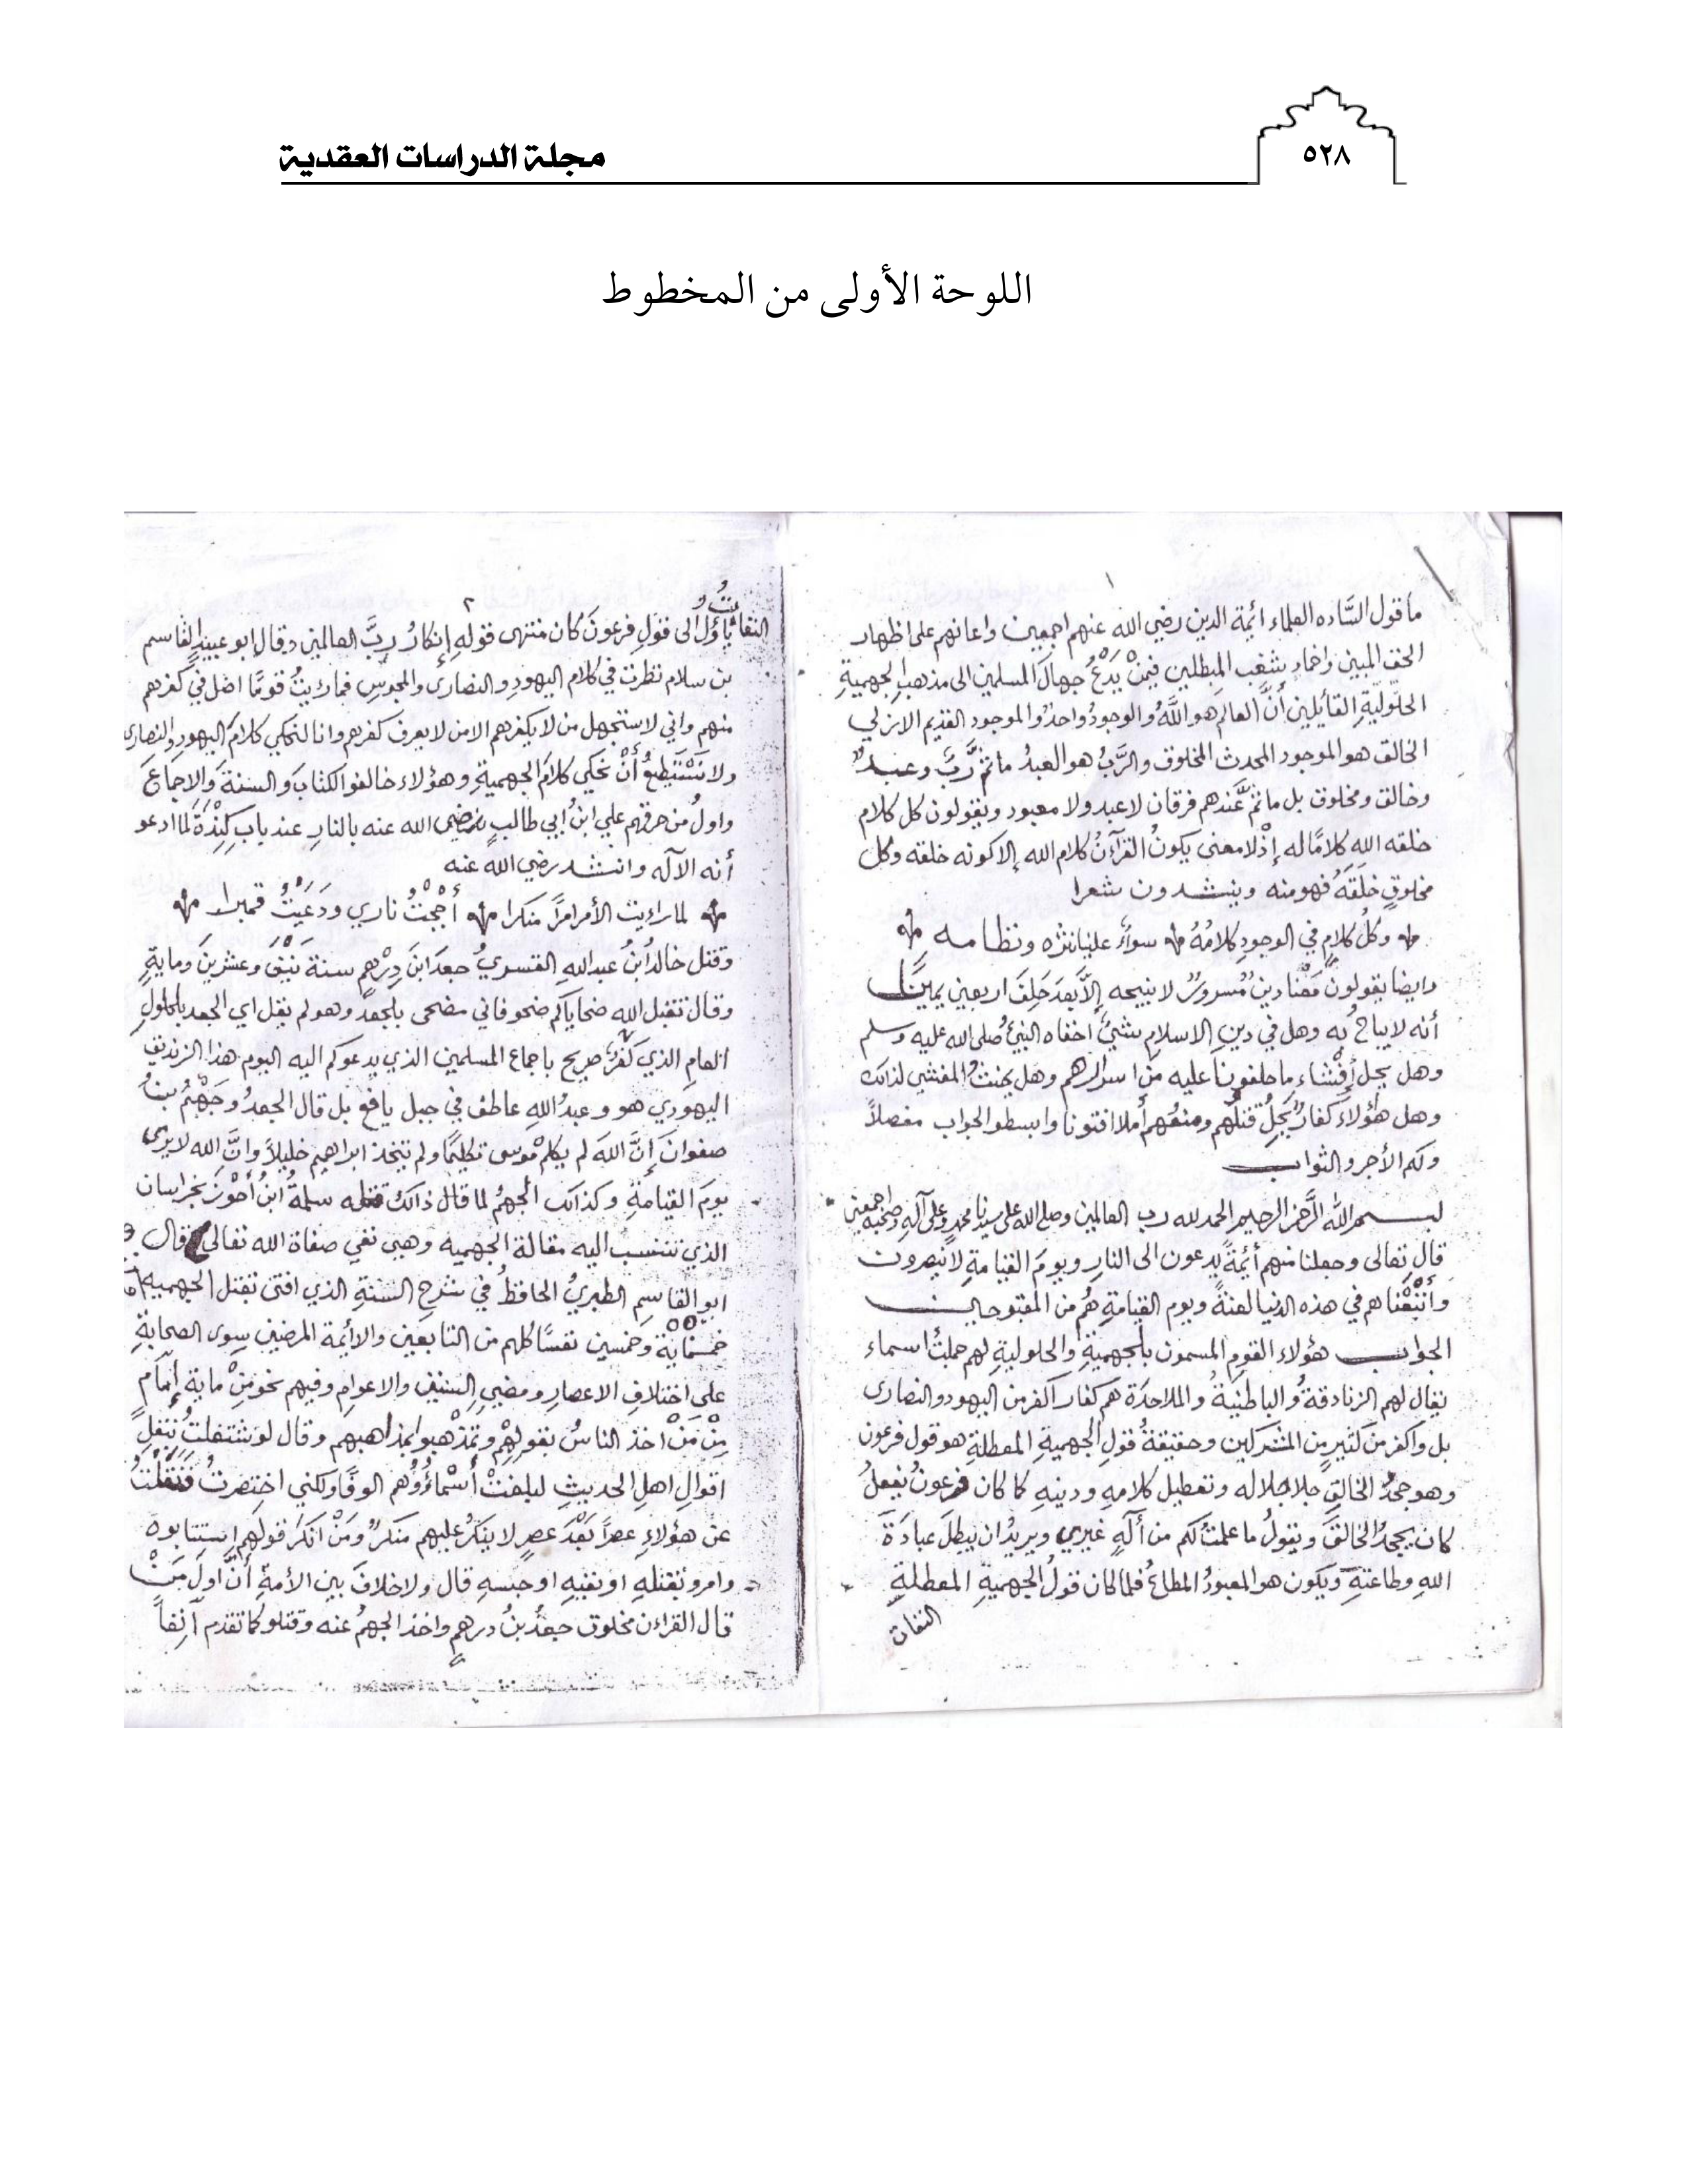 ٥٢٨
مجلة الدراسات العقدية
اللوحة الأولى من المخطوط
١
ما قول السَّاده العلماء ائمة الدين رضي الله عنهم اجمعين واعانهم على اظهار
الحق المبين واخماد شغب المبطلين فيمَنْ يَدْعُ جهالَ المسلمين الى مذهب الجهميةِ
الحلوليّةِ القائيلين أنَّ العالم هو اللَّهُ والوجودُ واحدٌ والموجود القديم الازلي
الخالق هو الموجود المحدث المخلوق والرَّبُ هو العبدُ ما ثمَّ ربٌ وعبدٌ
وخالق ومخلوق بل ما ثمَّ عندهم فرقان لا عبد ولا معبود ويقولون كل كلام
خلقه الله كلامًا له إذْ لا معنى يكونُ القرآنُ كلام الله إلا كونه خلقه وكل
مخلوقٍ خلقَهُ فهو منه وينشدون شعرا
وكلُ كلامٍ في الوجودِ كلامُهُ سواءٌ علينا نثره ونظامه
وايضا يقولون مَعْنا دينٌ مُسرورٌ لا نبيحه إلاَّ بعدَ حَلِفَ اربعين يمينًا
أنه لا يباحُ به وهل في دينِ الاسلامِ شيئٌ اخفاه النبيُ صلى الله عليه وسلم
وهل يحل إِفْشَاءِ ما حلفونا عليه من اسرارهم وهل يحنثُ المفشي لذالك
وهل هؤلاءِ كفارٌ يَحِلُ قتلُهم ومنعُهم أملا افتونا وابسطو الجواب مفصلاً
ولكم الأجر والثواب
بسم الله الرَّحمن الرحيم الحمد لله رب العالمين وصلى الله على سيدنا محمدٍ وعلى آلهِ وصحبه اجمعين
قال تعالى وجعلنا منهم أئِمةً يدعون الى النارِ ويومَ القيامةِ لا نيصرون
وأَتْبَعْناهم في هذه الدنيا لعنةً ويوم القيامةِ هُم من المقبوحين
الجواب هؤلاء القومِ المسمون بالجهميةِ والحلوليةِ لهم جملتُ اسماء
يقال لهم الزنادقةُ والباطنيةُ والملاحدَة هم كفار اكفر من اليهود والنصارى
بل واكفر من كثيرٍ من المشركين وحقيقةُ قولِ الجهميةِ المعطلةِ هو قول فرعون
وهو جحدُ الخالقِ جلا جلاله وتعطيل كلامهِ ودينهِ كما كان فرعونُ يفعلُ
كان يجحدُ الخالقَ ويقولُ ما علمتُ لكم من ألَهٍ غيري ويريدُ ان يبطلَ عبادَةَ
اللهِ وطاعتهِ ويكون هو المعبودُ المطاعُ فلما كان قولُ الجهميةِ المعطلةِ
النفات
٢
النفات يأولُ الى قولِ فرعونَ كان منتهى قولهِ إنكارُ ربِّ العالمين وقال ابو عبيد القاسم
بن سلام نظرت في كلام اليهودِ والنصارى والمجوسِ فما رءيتُ قومًا اضل في كفرهم
منهم واني لاستجهل من لا يكفرهم الا من لا يعرف كفرهم وانا لنحكي كلامَ اليهود والنصارى
ولا نَسْتَطِيعُ أَنْ نحكي كلامَ الجهميةِ وهؤلاءِ خالفو الكتابَ والسنةَ والاجماعَ
واولُ من حرقهم علي ابنُ ابي طالبٍ رضي الله عنه بالنارِ عند بابِ كِنْدَةَ لما ادعو
أنه الآله وانشد رضي الله عنه
لما رايت الأمر امرًا منكرا أجْجتُ ناري ودَعَيْتُ قمبرا
وقتل خالدُ ابنُ عبد اللهِ القسريُ جعدَ ابنَ دِرْهمٍ سنة نَيْفَ وعشرينَ ومايةٍ
وقال تقبل الله ضحاياكم ضحو فاني مضحى بلجعد وهو لم يقل اي الجعد بالحلولِ
العام الذي كفرٌ صريح باجماع المسلمين الذي يدعوكم اليه اليوم هذا الزنديق
اليهودي هو وعبدُ اللهِ عاطف في جبل يافع بل قال الجعدُ وجَهْمُ بنُ
صفوانَ إنَّ اللهَ لم يكلم موسى تكليمًا ولم يتخذ ابراهيم خليلاً وانَّ الله لا يُرى
يومَ القيامةِ وكذالك الجهمُ لما قال ذالك قتله سلمةُ ابنُ أحْوَزَ بخراسان
الذي تنسب اليه مقالة الجهميه وهي نفي صفاة الله تعالى وقال
ابو القاسمِ الطبريُ الحافظُ في شرحِ السنةِ الذي افتى بقتل الجهميه
خمسمايةٍ وخمسين نفسًا كلهم من التابعين والأئمة المرضين سِوى الصحابةِ
على اختلافِ الاعصارِ ومضيِ السنين والاعوامِ وفيهم نحو مِنْ مايةِ إمامٍ
مِنْ مَنْ اخذ الناسُ بقولهِمْ وتمذْهبو بمذاهبهم وقال لو شتغلتُ بنقلِ
اقوالِ اهلِ الحديثِ لبلغتْ أسْماؤُهم الوفًا ولكني اختصرتُ فَنَقَلْتُ
عن هؤلاءِ عصرًا بَعْدَ عصرٍ لا ينكرُ عليهم منكرٌ ومَنْ انكر قولهم استتابوه
وامرو بقتلهِ او نفيهِ او حبسهِ قال ولا خلافَ بين الأمةِ أنَّ اولَ مَنْ
قال القرائن مخلوق جعدُ بنُ درهمٍ واخذ الجهمُ عنه وقتلو كما تقدم آنِفاً